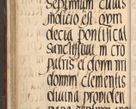 septimum cuius
indicio est dom
deca pontifical
sanctissimi in cro
patris et dni m
domini clementis
diuina prouiden